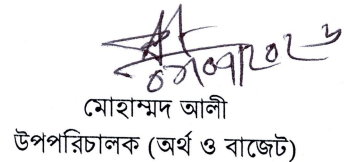 মোহাম্মদ আলী
উপপরিচালক (অর্থ ও বাজেট)